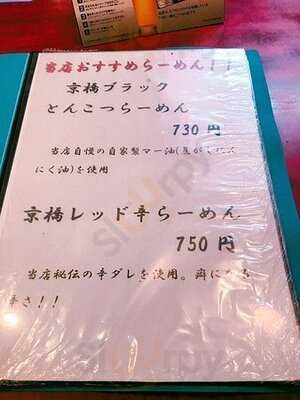 当店おすすめらーめん!!
京橋ブラック
とんこつらーめん
730円
当店自慢の自家製マー油(
にく油)を使用
京橋レッド辛らーめん
750円
当店秘伝の辛ダレを使用。癖になる
辛さ!!